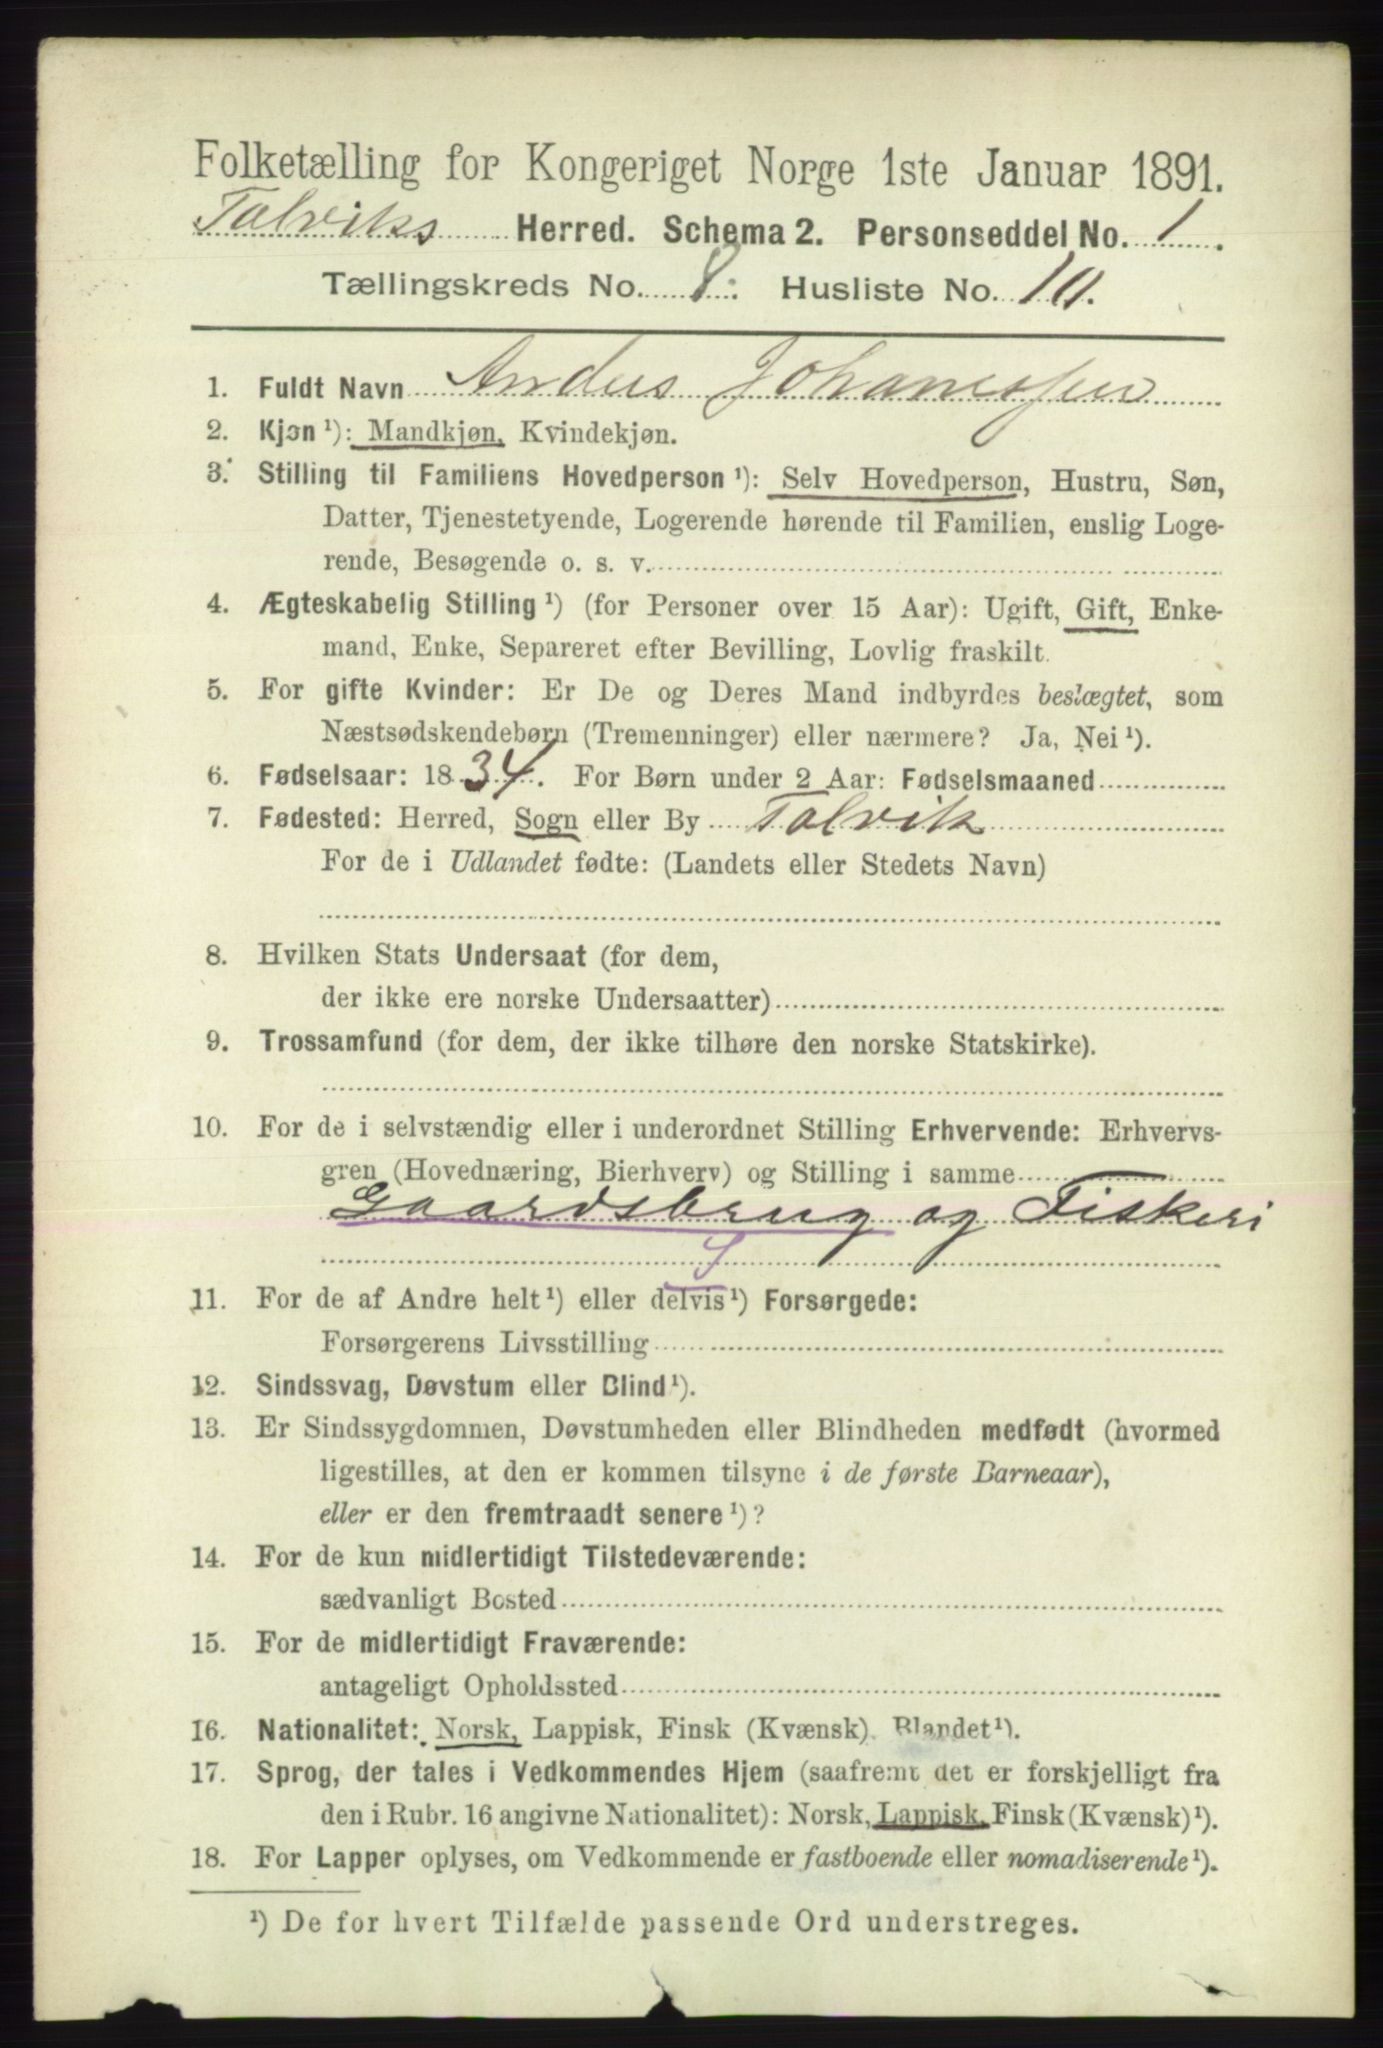 Folketælling for Kongeriget Norge 1ste Januar 1891.
Talviks Herred. Schema 2. Personseddel No. 1.
Tællingskreds No. 8. Husliste No. 10.
1. Fuldt Navn Anders Johannessen
2. Kjøn ¹): Mandkjøn, Kvindekjøn.
3. Stilling til Familiens Hovedperson ¹): Selv Hovedperson, Hustru, Søn,
Datter, Tjenestetyende, Logerende hørende til Familien, enslig Loge-
rende, Besøgende o. s. v.
4. Ægteskabelig Stilling ¹) (for Personer over 15 Aar): Ugift, Gift, Enke-
mand, Enke, Separeret efter Bevilling, Lovlig fraskilt.
5. For gifte Kvinder: Er De og Deres Mand indbyrdes beslægtet, som
Næstsødskendebørn (Tremenninger) eller nærmere? Ja, Nei ¹).
6. Fødselsaar: 1834. For Børn under 2 Aar: Fødselsmaaned
7. Fødested: Herred, Sogn eller By Talvik
For de i Udlandet fødte: (Landets eller Stedets Navn)
8. Hvilken Stats Undersaat (for dem,
der ikke ere norske Undersaatter)
9. Trossamfund (for dem, der ikke tilhøre den norske Statskirke).
10. For de i selvstændig eller i underordnet Stilling Erhvervende: Erhvervs-
gren (Hovednæring, Bierhverv) og Stilling i samme
Gaardsbrug og Fiskeri
S
11. For de af Andre helt ¹) eller delvis ¹) Forsørgede:
Forsørgerens Livsstilling
12. Sindssvag, Døvstum eller Blind ¹).
13. Er Sindssygdommen, Døvstumheden eller Blindheden medfødt (hvormed
ligestilles, at den er kommen tilsyne i de første Barneaar),
eller er den fremtraadt senere ¹)?
14. For de kun midlertidigt Tilstedeværende:
sædvanligt Bosted
15. For de midlertidigt Fraværende:
antageligt Opholdssted
16. Nationalitet: Norsk, Lappisk, Finsk (Kvænsk). Blandet ¹).
17. Sprog, der tales i Vedkommendes Hjem (saafremt det er forskjelligt fra
den i Rubr. 16 angivne Nationalitet): Norsk, Lappisk, Finsk (Kvænsk) ¹).
18. For Lapper oplyses, om Vedkommende er fastboende eller nomadiserende ¹).
¹) De for hvert Tilfælde passende Ord understreges.